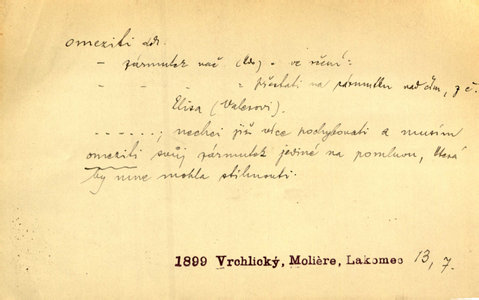 omeziti dok.
– zármutek nač (ds) – ve rčení:
– – – = přestati na zármutku nad čím, z č.
Elisa (Valerovi).
. . . . . . ; nechci již více pochybovati a musím
omeziti svůj zármutek jedině na pomluvu, která
by mne mohla stihnouti.
1899 Vrchlický, Molière, Lakomec 13, 7.